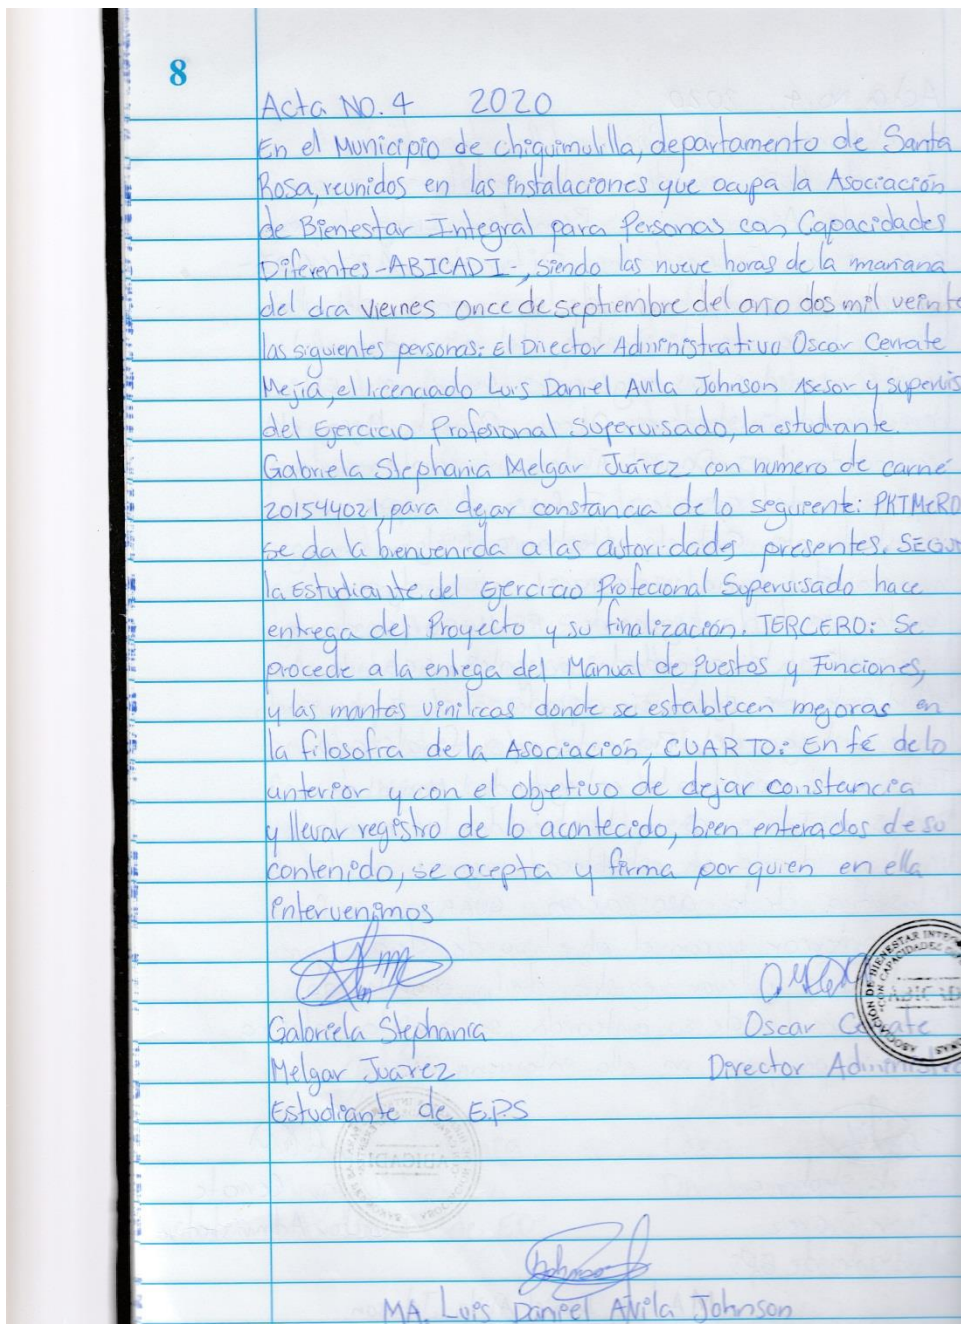 8
Acta NO. 4 2020
En el Municipio de chiquimulilla, departamento de Santa
Rosa, reunidos en las instalaciones que ocupa la Asociación
de Bienestar Integral para Personas con Capacidades
Diferentes -ABICADI-, siendo las nueve horas de la mañana
del día viernes once de septiembre del año dos mil veinte
las siguientes personas: El Director Administrativo Oscar Cerrate
Mejía, el licenciado Luis Daniel Avila Johnson Asesor y supervis
del Ejercicio Profesional Supervisado, la estudiante
Gabriela Stephania Melgar Juárez con numero de carné
201544021, para dejar constancia de lo seguiente: PRIMERO
se da la bienvenida a las autoridades presentes. SEGUN
la Estudiante del Ejercicio Profecional Supervisado hace
entrega del Proyecto y su finalización. TERCERO: Se
procede a la entega del Manual de Puestos y Funciones,
y las mantas vinilicas donde se establecen mejoras en
la filosofía de la Asociación, CUARTO: En fé de lo
anterior y con el objetivo de dejar constancia
y llevar registro de lo acontecido, bien enterados de su
contenido, se acepta y firma por quien en ella
intervenimos
Gabriela Stephania Oscar Cerrate
Melgar Juárez Director Administrativo
Estudiante de E.P.S
ABICADI
MA. Luis Daniel Avila Johnson